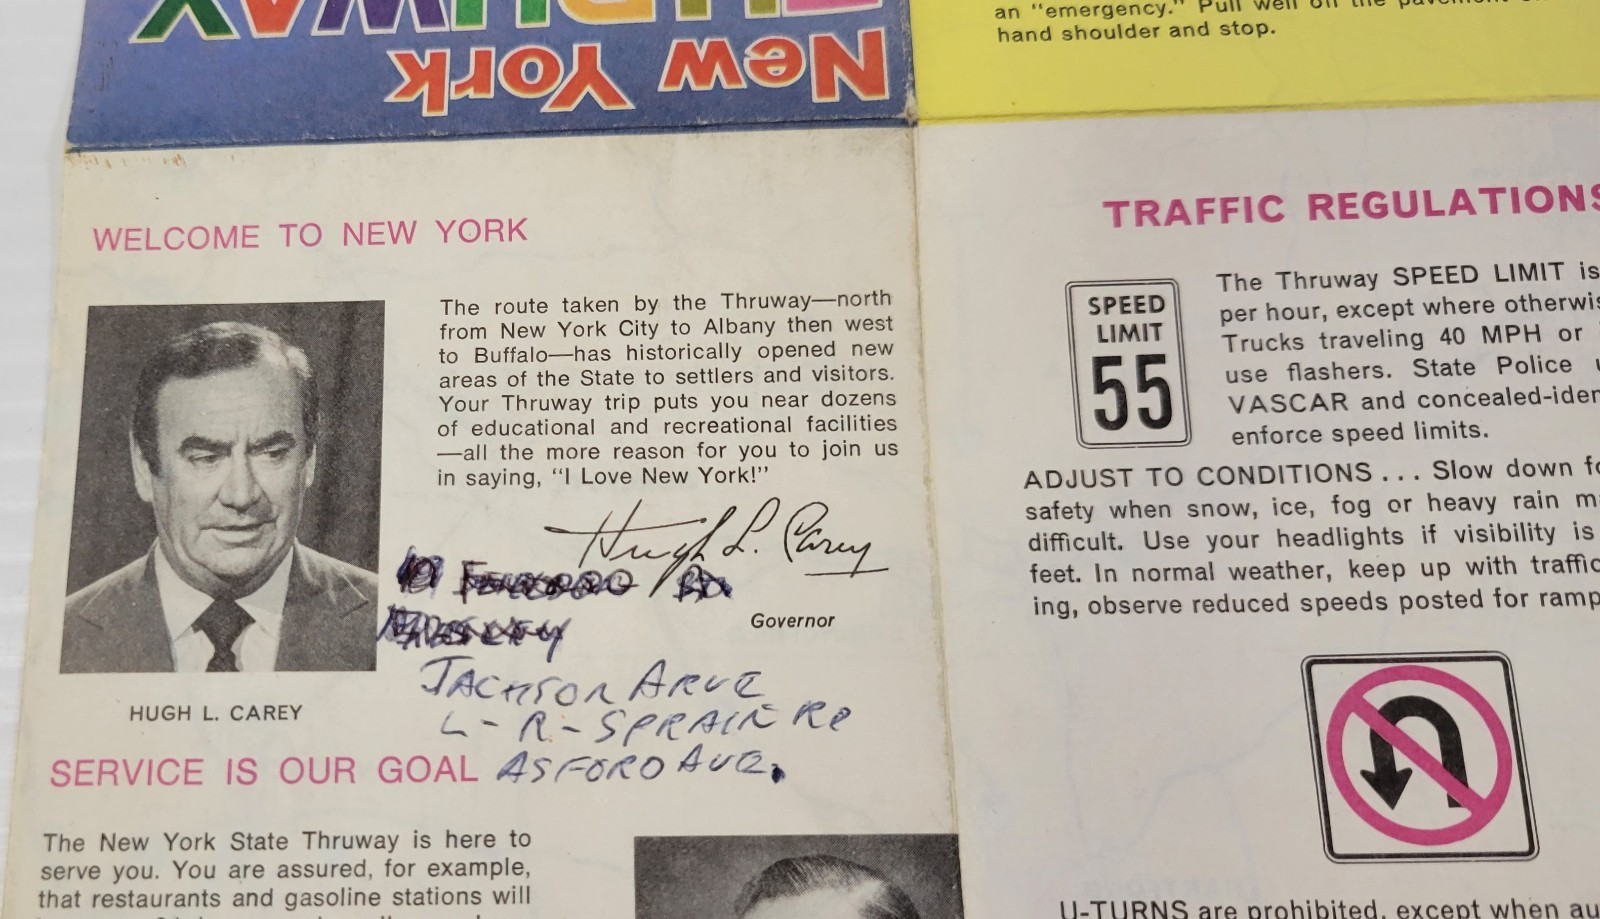 THRUWAY
New York
an "emergency." Pull well off the pavement
hand shoulder and stop.
WELCOME TO NEW YORK
The route taken by the Thruway—north
from New York City to Albany then west
to Buffalo—has historically opened new
areas of the State to settlers and visitors.
Your Thruway trip puts you near dozens
of educational and recreational facilities
—all the more reason for you to join us
in saying, "I Love New York!"
Hugh L. Carey
Governor
JACKSON
L-R-SPRAIN RD
ASFORD AVE.
HUGH L. CAREY
SERVICE IS OUR GOAL
The New York State Thruway is here to
serve you. You are assured, for example,
that restaurants and gasoline stations will
TRAFFIC REGULATIONS
SPEED
LIMIT
55
The Thruway SPEED LIMIT is
per hour, except where
Trucks traveling 40 MPH or
use flashers. State Police
VASCAR and
enforce speed limits.
ADJUST TO CONDITIONS... Slow down
safety when snow, ice, fog or heavy rain
difficult. Use your headlights if visibility is
feet. In normal weather, keep up with traffic
ing, observe reduced speeds posted for
U-TURNS are prohibited, except when